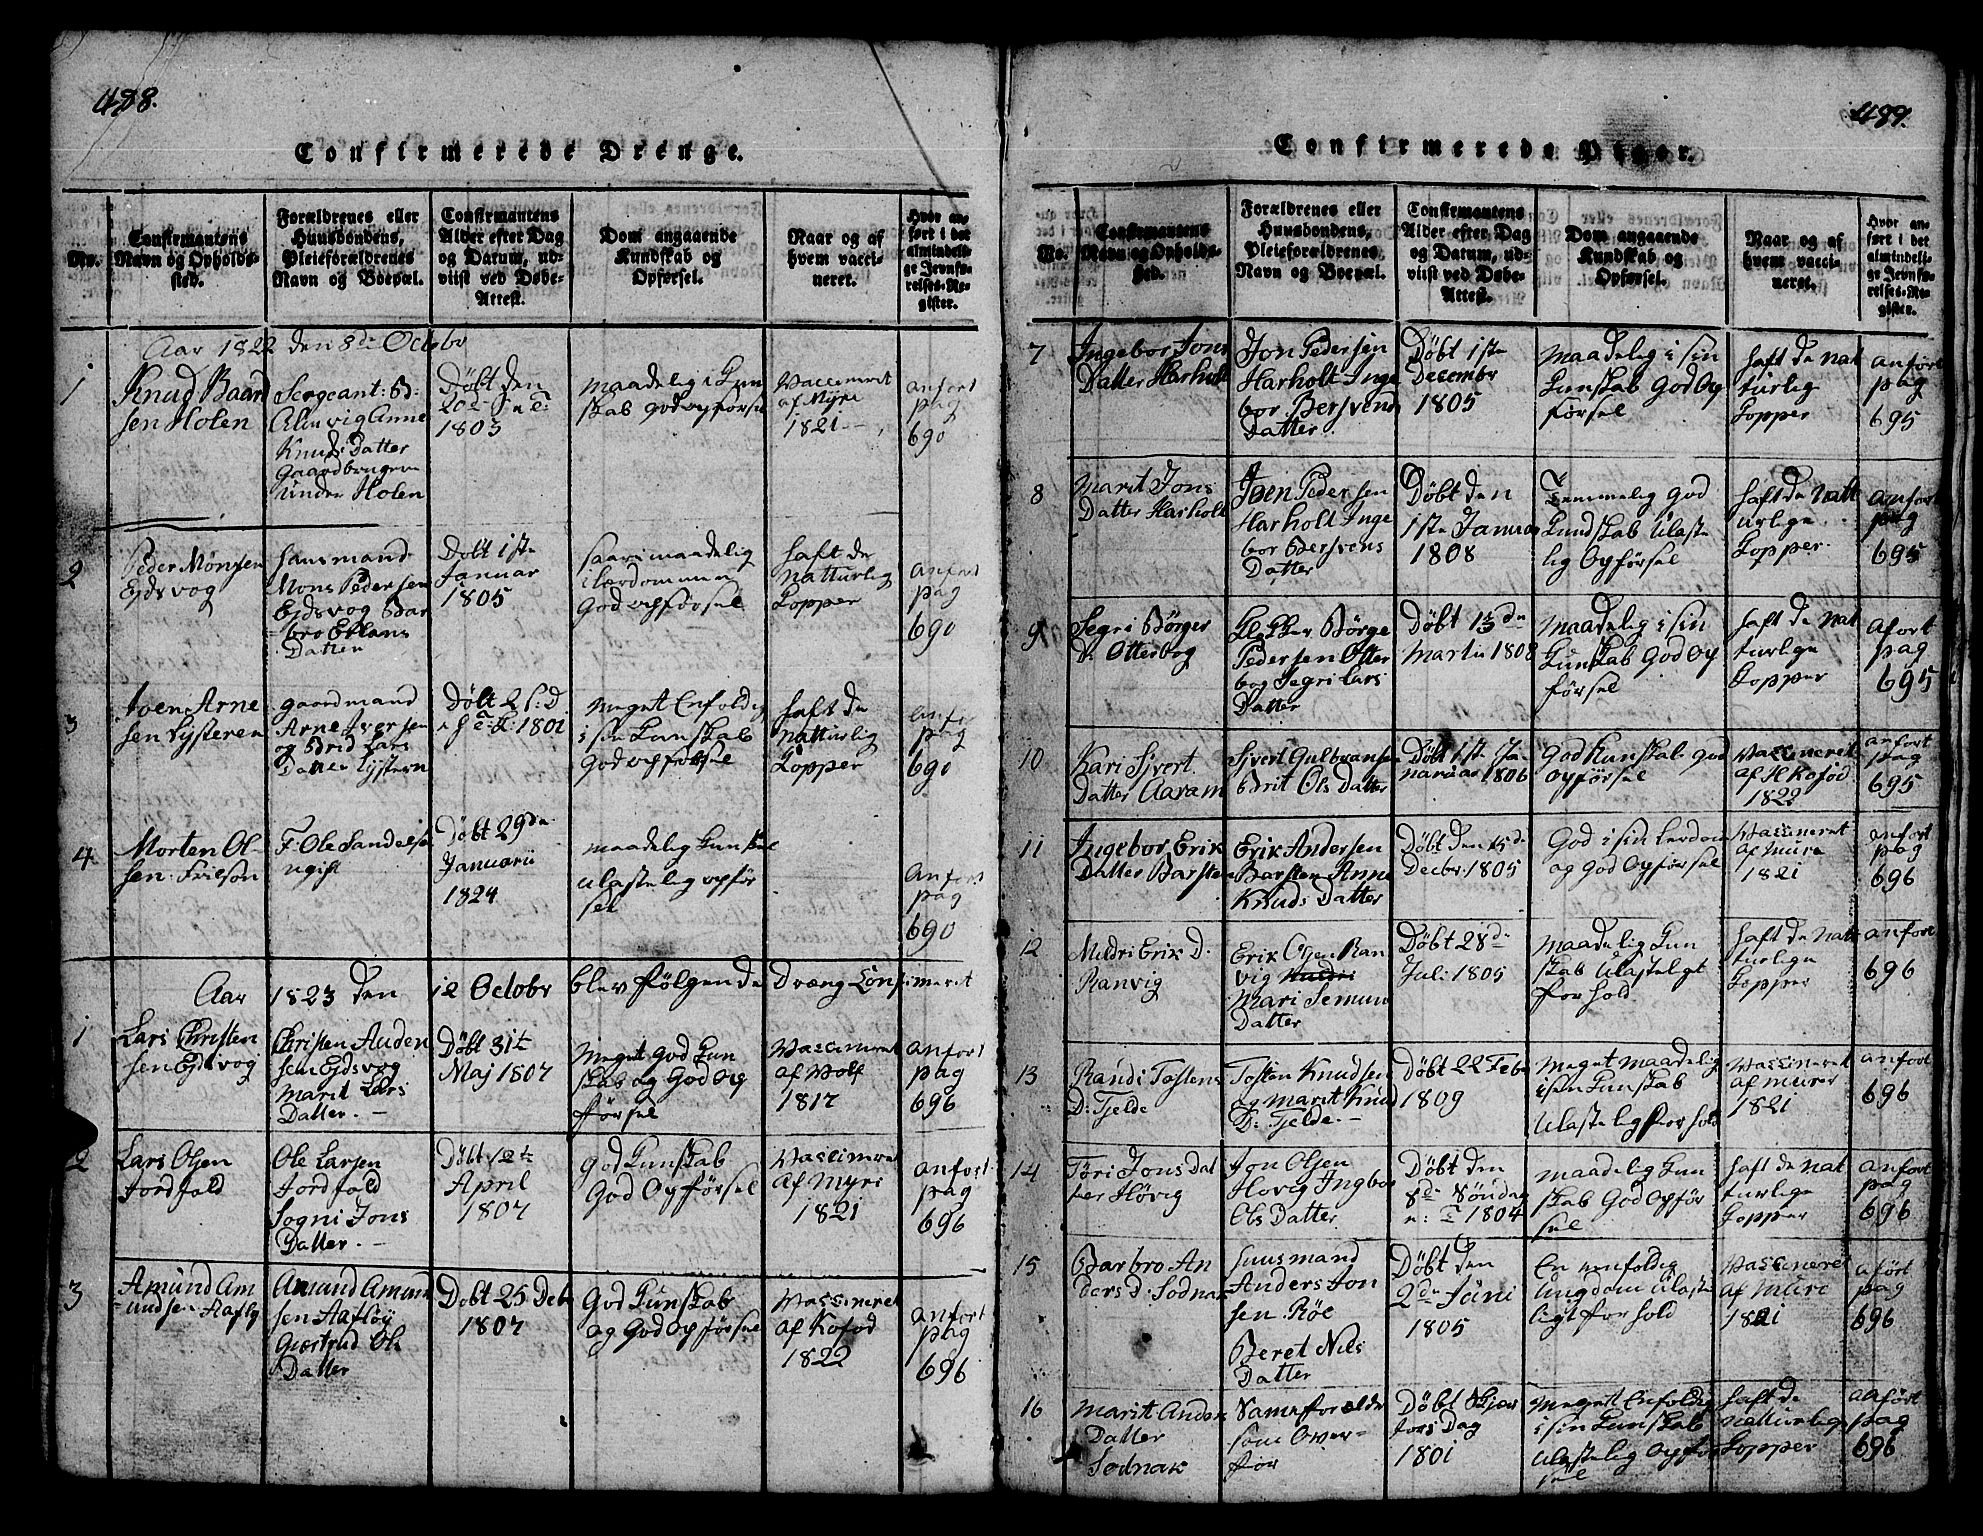 488.
Confirmerede Drenge.
No.
Confirmantens Navn og Opholds-sted.
Forældrenes eller Huusbondens, Pleieforældrenes Navn og Boepæl.
Confirmantens Alder efter Dag og Datum, ud-viist ved Døbe-Attest.
Dom angaaende Kundskab og Opførsel.
Naar og af hvem vacci-neret.
Hvor an-ført i det almindeli-ge Jevnfø-relses-Re-gister.
Aar 1822 den 8de Octobr
1
Knud Baard
sen Holen
Sergeant: B:
Almvig Anne
Knuds Datter
Gaardbrugere
under Holen
Døbt den
1803
maadelig i Kun
skab god opførsel
Vaccinerit
af Myre
1821
anført
pag
690
2
Peder Mønsen
Ejdsvog
Huusmand
Mons Pedersen
Ejdsvog Bar
bro Erlans
Datter
Døbt 1ste
Januar
1805
saare maadelig
i Lærdommen
God opførsel
haft de
Natturlig
Kopper
anført
pag
690
3
Iver Arne
sen Lysteren
gaardmand
Arne Iversen
og Brid Lars
Datter Lystern
Døbt 26: D
1801
meget Enfoldig
i sin Kunskab
God opførsel
haft de
Natturlig
Kopper
anfør
pag
690
4
Morten Ol-
sen: Frilson
F: Ole Sandelsen
ugift
Døbt 29de
Januarii
1824
maadelig Kunskab
Ulastelig opfør
sel
anført
pag
690
Aar 1823 den 12 Octobr blev følgende Dræng Konfirmerit
1
Lars Christen
sen Ejdsvog
Christen Auden
sen Ejdsvog
Marit Lars
Datter. -
Døbt 31te
Maj 1807
Meget God Kun
skab og God Op
førsel
Vassineret
af Wolf
1817
anført
pag
696
2
Lars Olsen
Jordfald
Ole Larsen
Jordfald
Sogni Jons
Datter. -
Døbt 12te
April
1807
God Kunskab
God Opførsel
Vassineret
af Myri
1821
anført
pag
696
3
Amund Am
undsen Aafløy
Amund Amun
sen Aafløy
Giertrud Ols
Datter
Døbt 25 Debr
1807
God Kunskab
og God opførsel
Vassineret
af Kofod
1822
anført
pag
696
489.
Confirmerede Piger.
No.
Confirmantens Navn og Opholds-sted.
Forældrenes eller Huusbondens, Pleieforældrenes Navn og Boepæl.
Confirmantens Alder efter Dag og Datum, ud-viist ved Døbe-Attest.
Dom angaaende Kundskab og Opførsel.
Naar og af hvem vacci-neret.
Hvor an-ført i det almindeli-ge Jevnfø-relses-Re-gister.
7
Ingebor Jons
Datter Harholt
Jon Pedersen
Harholt Inge
bor Bersvens
Datter
Døbt 1ste
Decembr
1805
Maadelig i sin
Kunskab God Op
førsel
haft de nat
turlig
Kopper
anført
pag
695
8
Marit Jons
Datter Harholt
Joen Pedersen
Harholt Inge
bor Bersvens
Datter
Døbt den
1ste Januar
1808
Temmelig god
Kundskab Ulaste
lig Opførsel
haft de natt
urlige
Kopper.
anført
pag
695
9
Segri Børger
D: Otterbog
Børge
Pedersen Otter
bog Segri Lars
Datter
Døbt 13de
Martii 1808
Maadelig i sin
Kunskab God Op
førsel
haft de nat
turlige
Kopper
aført
pag
695
10
Kari Sjvert
Datter Aaram
Sjvert Gulbransen
Brit Ols Datter
Døbt 1ste Ja
nuarius 1806
God Kunskab god
opførsel
Vassineret
af H Kofod
1822
anført
pag
695
11
Ingebor Erik
Datter Barsten
Erik Andersen
Barsten Anne
Knuds Datter
Døbt den 15de
Decbr. 1805
God i sin Lerdom
og God Opførsel
Vassineret
af Mure
1821
anført
pag
696
12
Mildri Erik D.
Ranvig
Erik Olsen Ran
vig
Mari Semun
Datter
Døbt 28de
Juli 1805
Maadelig Kun
skab Ulasteligt
Forhold
haft de nat
turlige
Kopper
anført
696
13
Randi Tostens
D: Tjelde
Tosten Knudsen
og Marit Knud
D: Tjelde. -
Døbt 22 Feb
1809
Meget maadelig
i sin Kunskab
Ulastelig forhold
Vassineret
af Murer
1821
anført
696
14
Tøri Jons Dat
ter Høvig
Jon Olsen
Hovig Ingbor
Ols Datter
Døbt den
8de Søndag
1804
maadelig Kun
skab God opfør
sel
haft de nat
turlige
Kopper
anført
pag
696
15
Barbro An
ders D: Sødnak
Huusmand
Anders Jon
sen Røe
Beret Nils
Datter
Døbt den
2de Juni
1805
En enfoldig
Ungdom Ulaste
ligt forhold
Vassineret
af Mure
1821
aført
pag
696
16
Marit Anders
Datter
Sødnak
Same forælder
som Over-
for
Døbt Skjær
torsdag
1801
Meget Enfoldig
i sin Kunskab
Ulastelig Opfør
sel
haft de
natturlig
Kopper
anført
pag
696